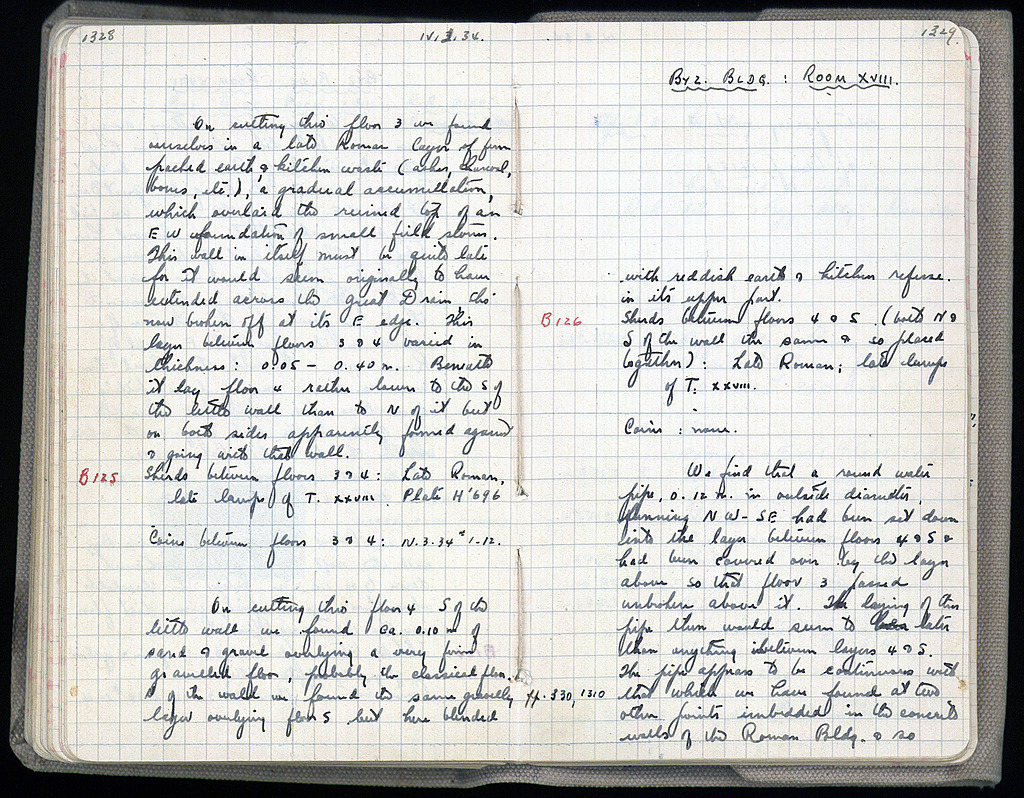 1328
IV.3.34.
On cutting this floor 3 we found
ourselves in a late Roman layer of firm
packed earth & kitchen waste (ashes, charcoal,
bones, etc.), a gradual accumulation,
which overlaid the ruined top of an
E W foundation of small field stones.
This wall in itself must be quite late
for it would seem originally to have
extended across the great Drain tho'
now broken off at its E edge. This
layer between floors 3 & 4 varied in
thickness: 0.05 – 0.40 m. Beneath
it lay floor 4 rather lower to the S of
the little wall than to N of it but
on both sides apparently formed against
& going with that wall.
B125
Sherds between floors 3 & 4: Late Roman,
late lamps of T. XXVIII Plate H'696
Coins between floors 3 & 4: N.3.34 # 1-12.
On cutting this floor 4 S of the
little wall we found ca. 0.10 m of
sand & gravel overlying a very firm
gravelled floor, probably the classical floor.
of the wall we found the same gravelly
layer overlying floor 5 but here blended
1329
Byz. Bldg. : Room XVIII.
with reddish earth & kitchen refuse.
in its upper part.
B126
Sherds between floors 4 & 5. (both N &
S of the wall the same & so placed
together): Late Roman; late lamps
of T. XXVIII.
Coins: none.
We find that a round water
pipe, 0.12 m. in outside diameter,
running NW-SE had been set down
into the layer between floors 4 & 5 &
had been covered over by the layer
above so that floor 3 passed
unbroken above it. The laying of this
pipe then would seem to be later
than anything between layers 4 & 5.
The pipe appears to be continuous with
that which we have found at two
pp. 330, 1310
other points imbedded in the concrete
walls of the Roman Bldg. & so